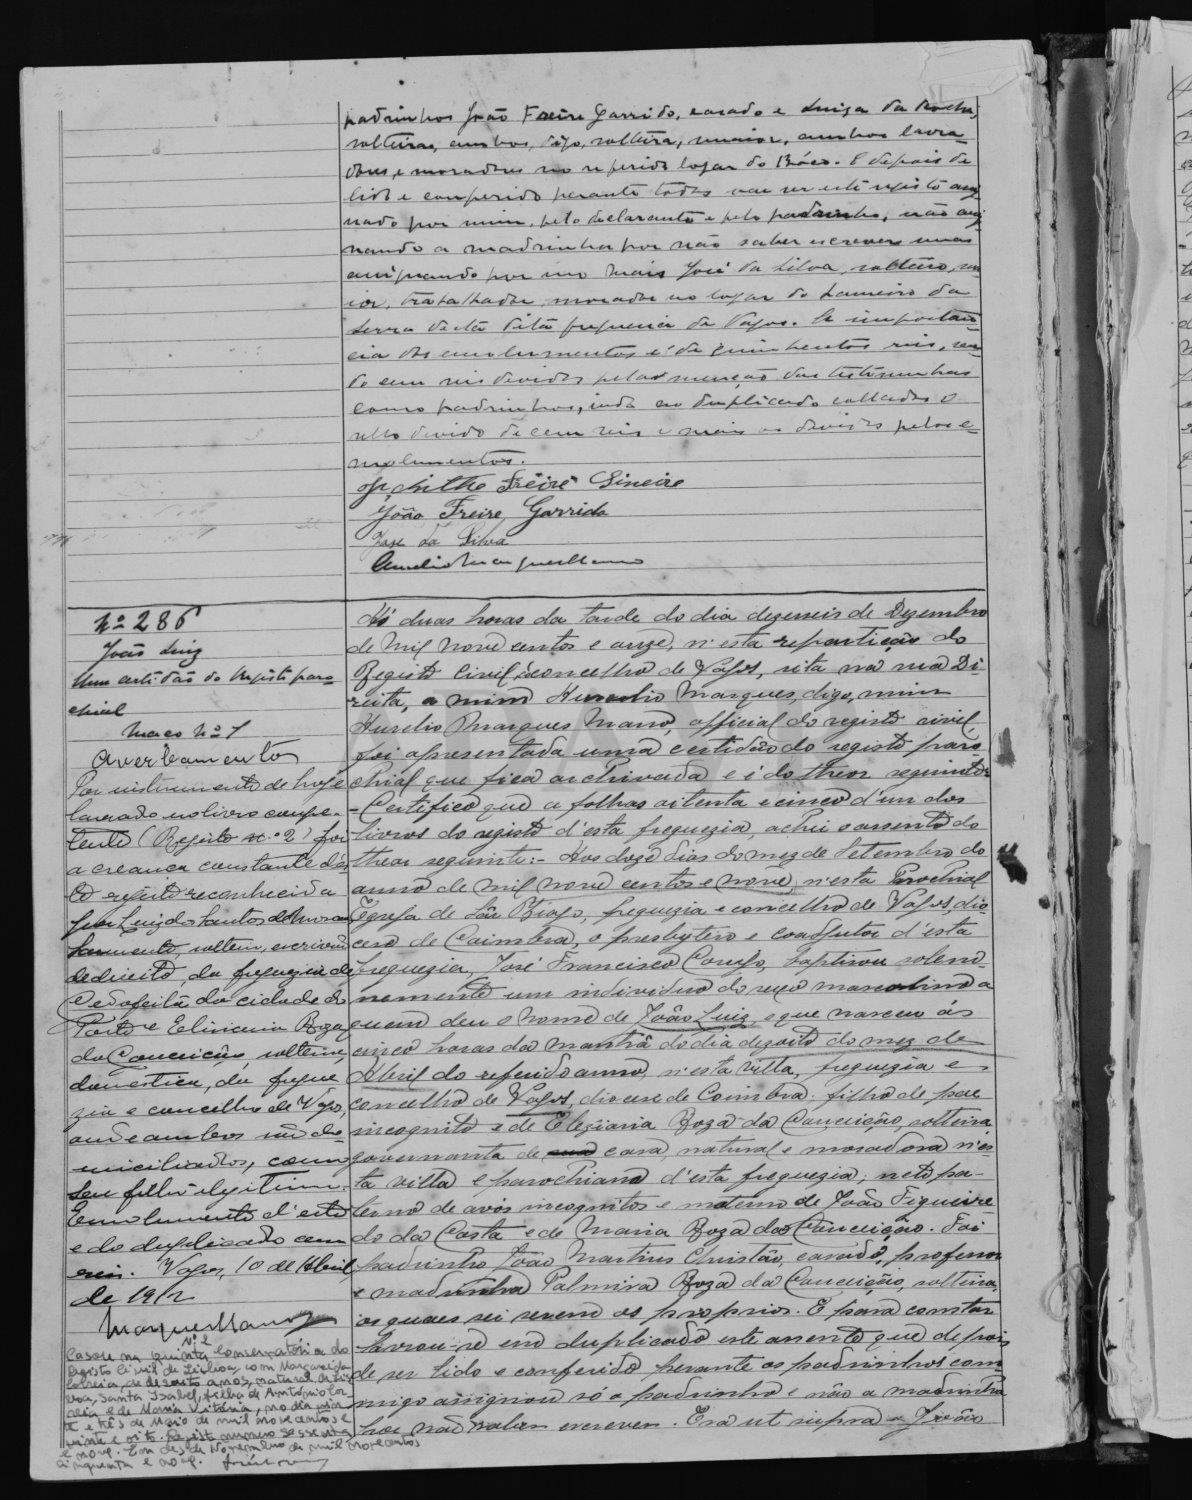 padrinhos João Freire Garrido, casado e Luiza da Rocha,
solteira, ambos, digo, solteira, maior, ambos lavra-
dores, e moradores no referido logar do Bôco. E depois de
lido e conferido perante todos vae ser este registo assi-
gnado por mim, pelo declarante e pelo padrinho, não assi-
gnando a madrinha por não saber escrever mas
assignando por mais José da Silva, solteiro, ma-
ior, trabalhador, morador no logar do Lameiro da
Serra desta dita freguesia de Vagos. A importan-
cia dos emolumentos é de quinhentos reis, sen-
do cem reis devidos pela menção das testemunhas
como padrinhos, indo ao duplicado collados o
sello devido de cem reis e mais os devidos pelos e-
molumentos.
Freire Sineiro
João Freire Garrido
José da Silva
Aurelio Marques Manno
Nº 286
João Luiz
Uma certidão do registo paro-
chial
Maço Nº 1
Averbamento
Por instrumento de hoje
lavrado no livro compe-
tente (Registo n.º 2) foi
a creança constante d'es-
te registo reconhecida
por Luiz dos Santos
solteiro, escrivão
de direito, da freguezia de
Cedofeita da cidade do
Porto e Eliziaria Roza
da Conceição, solteira,
domestica, da fregue-
zia e concelho de Vagos,
onde ambos são do-
miciliados, como
seu filho illegitimo.
Emolumento d'este
e do duplicado cem
reis. Vagos, 10 de Abril
de 1912
Marques Manno
Nº 2
Casou na Quinta Conservatória do
Registo Civil de Lisboa, com Margarida
Correia, de dezoito anos, natural de Lis-
boa, Santa Isabel, filha de António Cor-
reia e de Maria Vitória, no dia vin-
te e três de Maio de mil novecentos e
vinte e oito. Registo número sessenta
e nove. Em dez de Novembro de mil novecentos
cinquenta e nove.
Ás duas horas da tarde do dia dezeseis de Dezembro
de mil nove centos e onze, n'esta repartição do
Registo Civil do concelho de Vagos, sita na rua Di-
reita, a mim Aurelio Marques, digo, mim
Aurelio Marques Manno, official do registo civil
foi apresentada uma certidão do registo paro-
chial que fica archivada e é do theor seguinte:
- Certifico que a folhas oitenta e cinco d'um dos
livros do registo d'esta freguezia, achei o assento do
theor seguinte:- Aos doze dias do mez de Setembro do
anno de mil nove centos e nove, n'esta Parochial
Egreja de São Thiago, freguezia e concelho de Vagos, dio-
cese de Coimbra, o presbytero e coadjutor d'esta
freguezia, José Francisco Corujo, baptisou solem-
nemente um individuo do sexo masculino a
quem deu o nome de João Luiz, e que nasceu ás
cinco horas da manhã do dia dezoito do mez de
Abril do referido anno, n'esta villa, freguezia e
concelho de Vagos, diocese de Coimbra, filho de pae
incognito e de Eleziaria Roza da Conceição, solteira,
governanta de casa, natural e moradora n'es-
ta villa e parochiana d'esta freguezia; neto pa-
terno de avós incognitos e materno de João Figueire-
do da Costa e de Maria Roza da Conceição. Foi
padrinho João Martins Christão, casado, professor
e madrinha Palmira Roza da Conceição, solteira,
os quaes sei serem os proprios. E para constar
lavrou-se em duplicado este assento que depois
de ser lido e conferido perante os padrinhos com
migo assignou só o padrinho e não a madrinha
por não saber escrever. Era ut supra. João